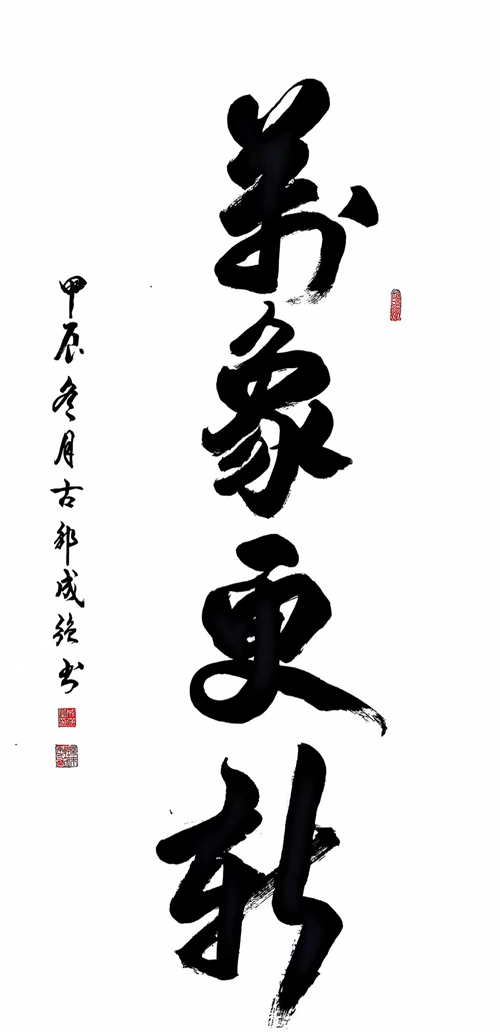 萬象更新
甲辰冬月古邹成強书